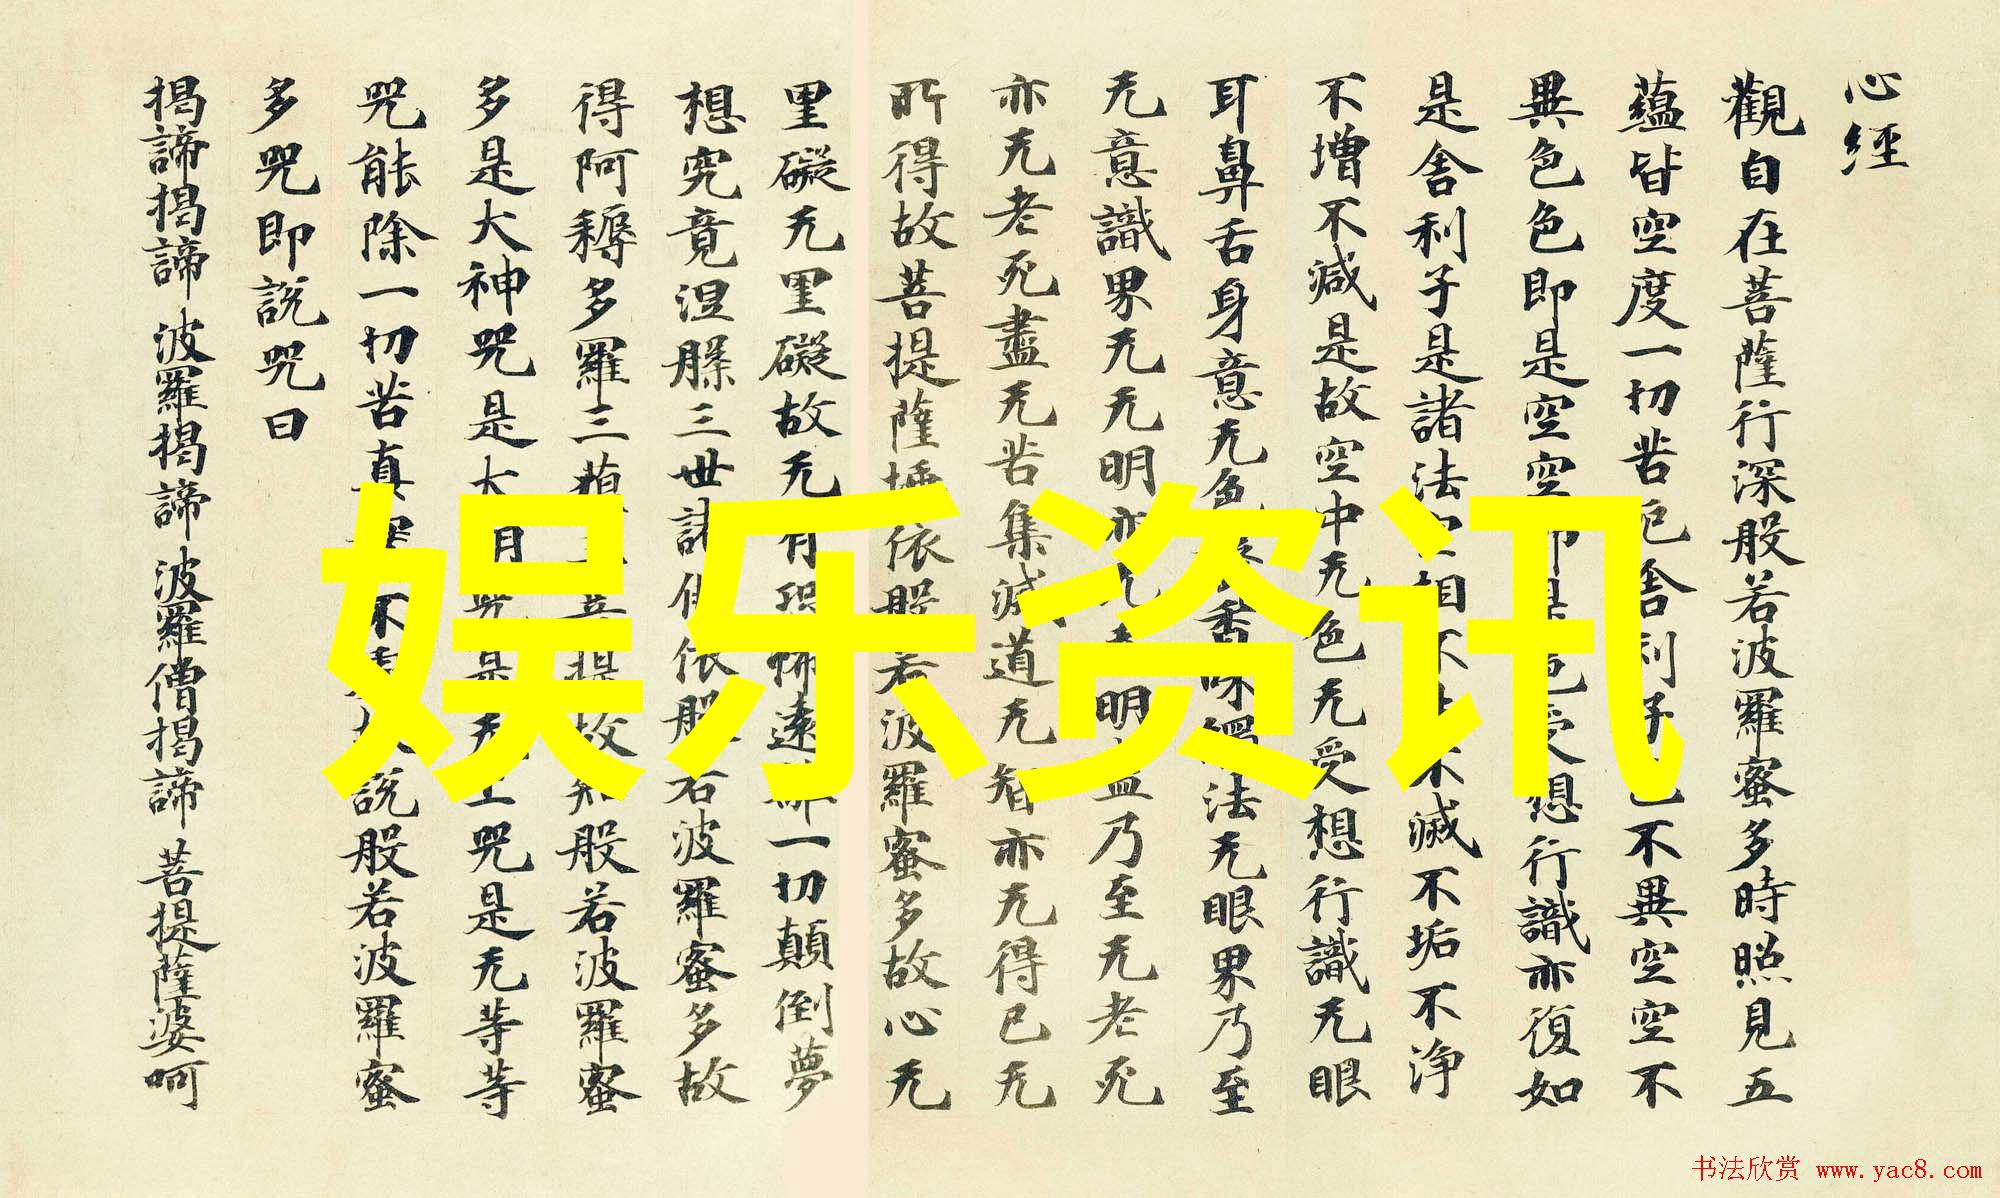 心經
觀自在菩薩行深般若波羅蜜多時照見五
蘊皆空度一切苦厄舍利子色不異空空不
異色色即是空空即是色受想行識亦復如
是舍利子是諸法空相不生不滅不垢不淨
不增不減是故空中无色无受想行識无眼
耳鼻舌身意无色聲香味觸法无眼界乃至
无意識界无无明亦无无明盡乃至无老死
亦无老死盡无苦集滅道无智亦无得已无
所得故菩提薩埵依般若波羅蜜多故心无
罣礙无罣礙故无有恐怖遠離一切顛倒夢
想究竟涅槃三世諸佛依般若波羅蜜多故
得阿耨多羅三藐三菩提故知般若波羅蜜
多是大神咒是大明咒是无上咒是无等等
咒能除一切苦真實不虛故說般若波羅蜜
多咒即說咒曰
揭諦揭諦 波羅揭諦 波羅僧揭諦 菩提薩婆呵
娱乐资讯
书法欣赏 www.yac8.com